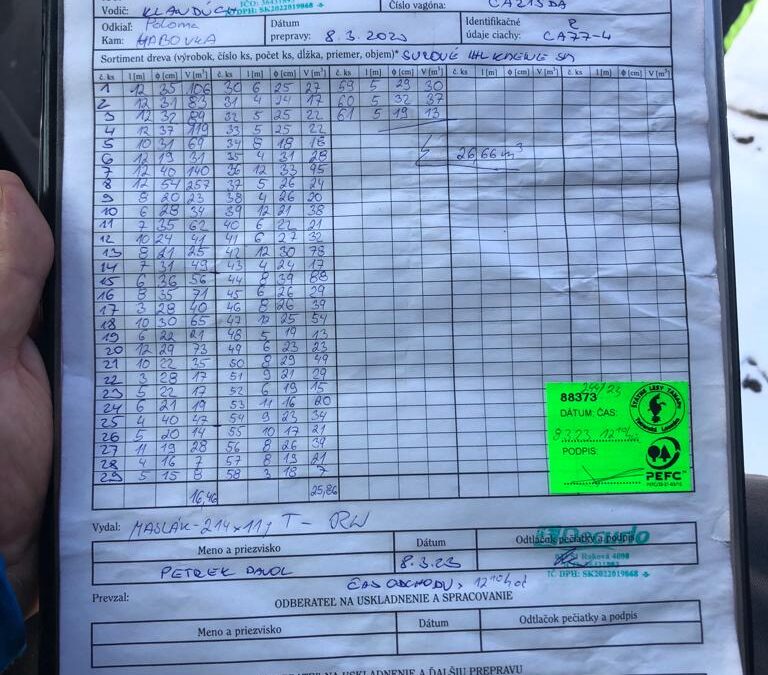 Vodič: KLANDÚCH
IČ DPH: SK2022019868
Číslo vagóna: CA215DA
Odkiaľ: Poloma
Kam: HABOVKA
Dátum prepravy: 8.3.2023
Identifikačné údaje ciachy: R CA77-4
Sortiment dreva (výrobok, číslo ks, počet ks, dĺžka, priemer, objem)* SUROVÉ
č. ks l [m] ϕ [cm] V [m³] č. ks l [m] ϕ [cm] V [m³] č. ks l [m] ϕ [cm] V [m³] č. ks l [m] ϕ [cm] V [m³] č. ks l [m] ϕ [cm] V [m³]
1 12 35 106 30 6 25 27 59 5 29 30
2 12 31 83 31 4 24 17 60 5 32 37
3 12 32 89 32 5 25 22 61 5 19 13
4 12 37 119 33 5 25 22
5 10 31 69 34 8 18 18
6 12 19 31 35 4 31 28 26,66 m³
7 12 40 140 36 12 33 95
8 12 54 257 37 5 26 24
9 8 20 23 38 4 26 20
10 6 28 34 39 12 21 38
11 7 35 62 40 6 22 21
12 10 24 41 41 6 27 32
13 8 21 25 42 12 30 78
14 7 31 49 43 4 24 17
15 6 36 56 44 8 39 88
16 8 35 71 45 6 26 29
17 3 28 40 46 8 26 39
18 10 30 65 47 12 25 54
19 6 22 21 48 5 19 13
20 12 29 73 49 6 23 23
21 10 22 35 50 8 29 49
22 3 28 17 51 9 21 29
23 5 22 17 52 6 19 15
24 6 21 19 53 11 16 20
25 4 40 47 54 9 23 34
26 5 20 14 55 10 17 21
27 11 19 28 56 8 26 39
28 4 16 7 57 8 19 21
29 5 15 8 58 3 18 7
16,46 25,86
244/23
88373
DÁTUM: ČAS:
8.3.23 12 10
PODPIS:
ŠTÁTNE LESY TANAPU
PEFC
Vydal: MASLÁK-214x11, T- RW
Meno a priezvisko Dátum Odtlačok pečiatky a podpis
PETREK PAVOL 8.3.23
Raková
IČ DPH: SK2022019868
ČAS ODCHODU: 12 10 hod
Prevzal:
ODBERATEĽ NA USKLADNENIE A SPRACOVANIE
Meno a priezvisko Dátum Odtlačok pečiatky a podpis
NA USKLADNENIE A ĎALŠIU PREPRAVU